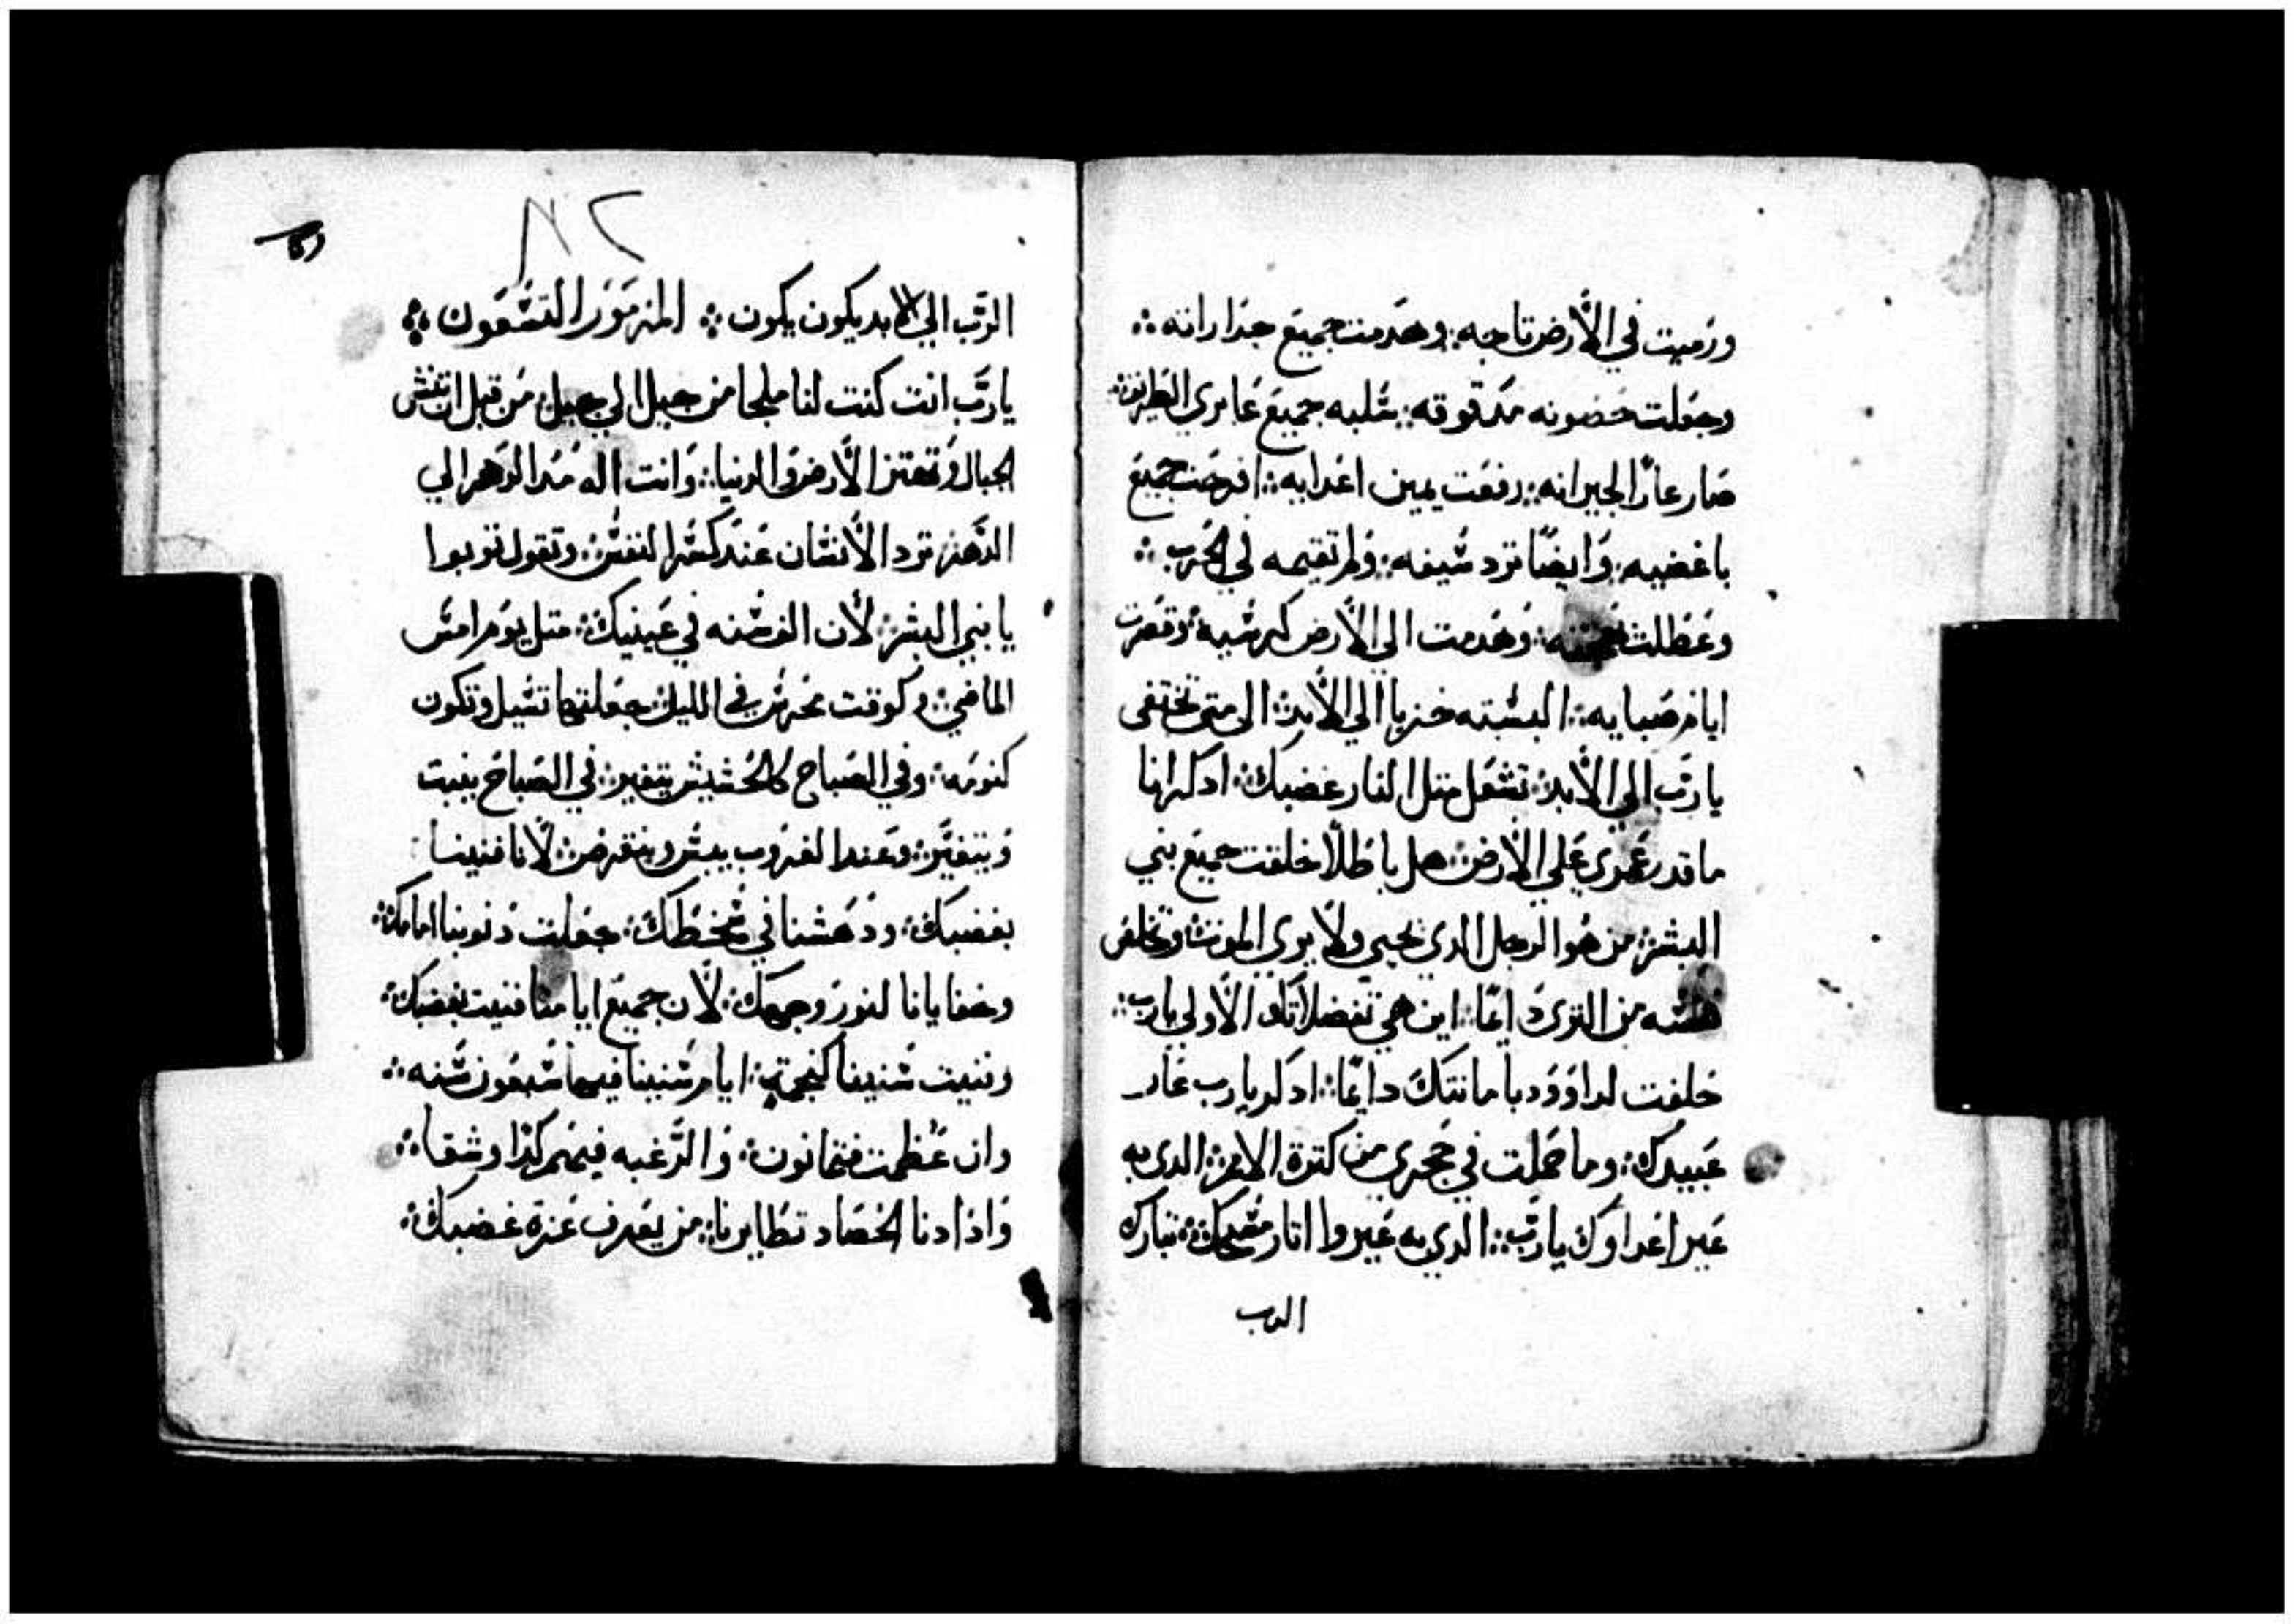 ورميت في الأرض تاجه؛ وهدمت جميع جدارانه
وجعلت حصونه مدقوقه؛ سلبه جميع عابري الطريق
صار عارًا لجيرانه؛ رفعت يمين اعدايه؛ افرحت جميع
باغضيه؛ وايضًا ترد سيفه؛ ولم تقيمه في الحرب
وعطلت؛ وهدمت الي الأرض كرسيه؛ وقصرت
ايام صبايه؛ البسته خزيا الي الأبد؛ الى متى تختفى
يا رب الي الأبد؛ تشعل متل النار غضبك؛ ادكر انا
ما قدر عمري علي الارض؛ هل باطلاً خلقت جميع بني
البشر؛ من هوا الرجل الدي يحيي ولا يرى الموت؛ وتخلص
نفسه من الترى دايمًا؛ اين هي تفضلاتك الأولي يارب
خلفت لداوود بامانتك دايمًا؛ ادكر يارب عار
عبيدك؛ وما حملت في حجري من كترة الامم؛ الدي به
عير اعداوك يا رب؛ الدي به عيروا اتار مسيحك؛ تبارك
الرب
٨٢
الرب الي الابد يكون يكون؛ المزمور التسعون
يا رب انت كنت لنا ملجا من جيل الي جيل؛ من قبل ان تنشى
الجبال وتهتز الأرض والدنيا؛ وانت اله مدا الدهر الي
الدهر؛ ترد الأنسان عند كسر النفس؛ وتقول توبوا
يا بني البشر؛ لأن الف سنه في عينيك؛ متل يوم امس
الماضي؛ وكوقت محرس في الليل؛ جعلتها تسيل وتكون
كنومه؛ وفي الصباح كالحشيش يتغير؛ في الصباح ينبت
ويتغير؛ وعند الغروب ييبس وينقرض؛ لأنا فنينا
بغضبك؛ ودهشنا في سخطك؛ جعلت دنوبنا امامك
وخفايانا لنور وجهك؛ لأن جميع ايامنا فنيت بغضبك
وفنيت سنينا؛ ايام سنينا فيها سبعون سنه
وان عظمت فتمانون؛ والرغبه فيهم كدا وشقا
واذا دنا الحصاد تطايرنا؛ من يعرف عزة غضبك